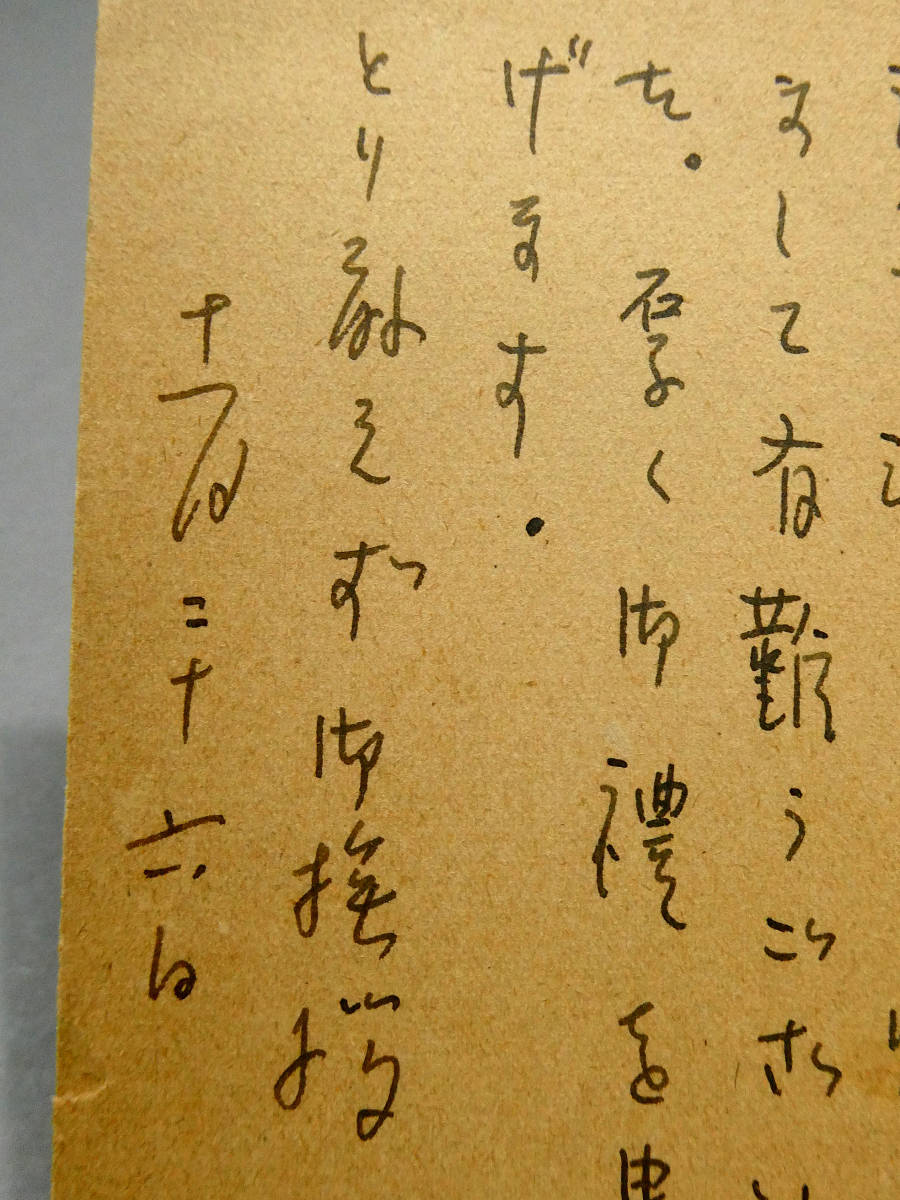 まして有難うござい
た。厚く御禮を申
げます。
とり敢えず御挨拶
十一月二十六日